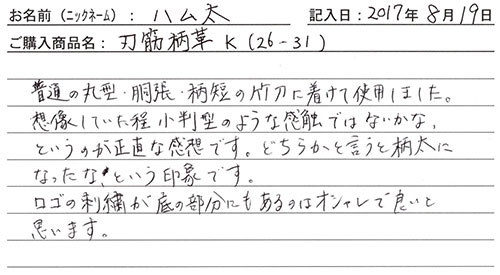 お名前(ニックネーム): ハム太 記入日:2017年8月19日
ご購入商品名: 刃筋柄革 K(26-31)
普通の丸型・胴張・柄短の竹刀に着けて使用しました。
想像していた程小判型のような感触ではないかな、
というのが正直な感想です。どちらかと言うと柄太に
なったな!という印象です。
ロゴの刺繍が底の部分にもあるのはオシャレで良いと
思います。